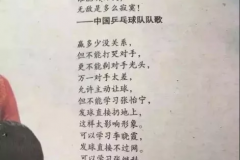 无敌是多么寂寞!
——中国乒乓球队队歌
赢多少没关系,
但不能打哭对手,
更不能剃对手光头,
万一对手太差,
允许主动让球,
但不能学习张怡宁,
发球直接扔地上,
这样太影响形象。
可以学习李晓霞,
发球直接不过网。